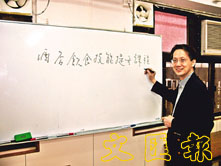 酒店飲食技能提升課程
文匯報